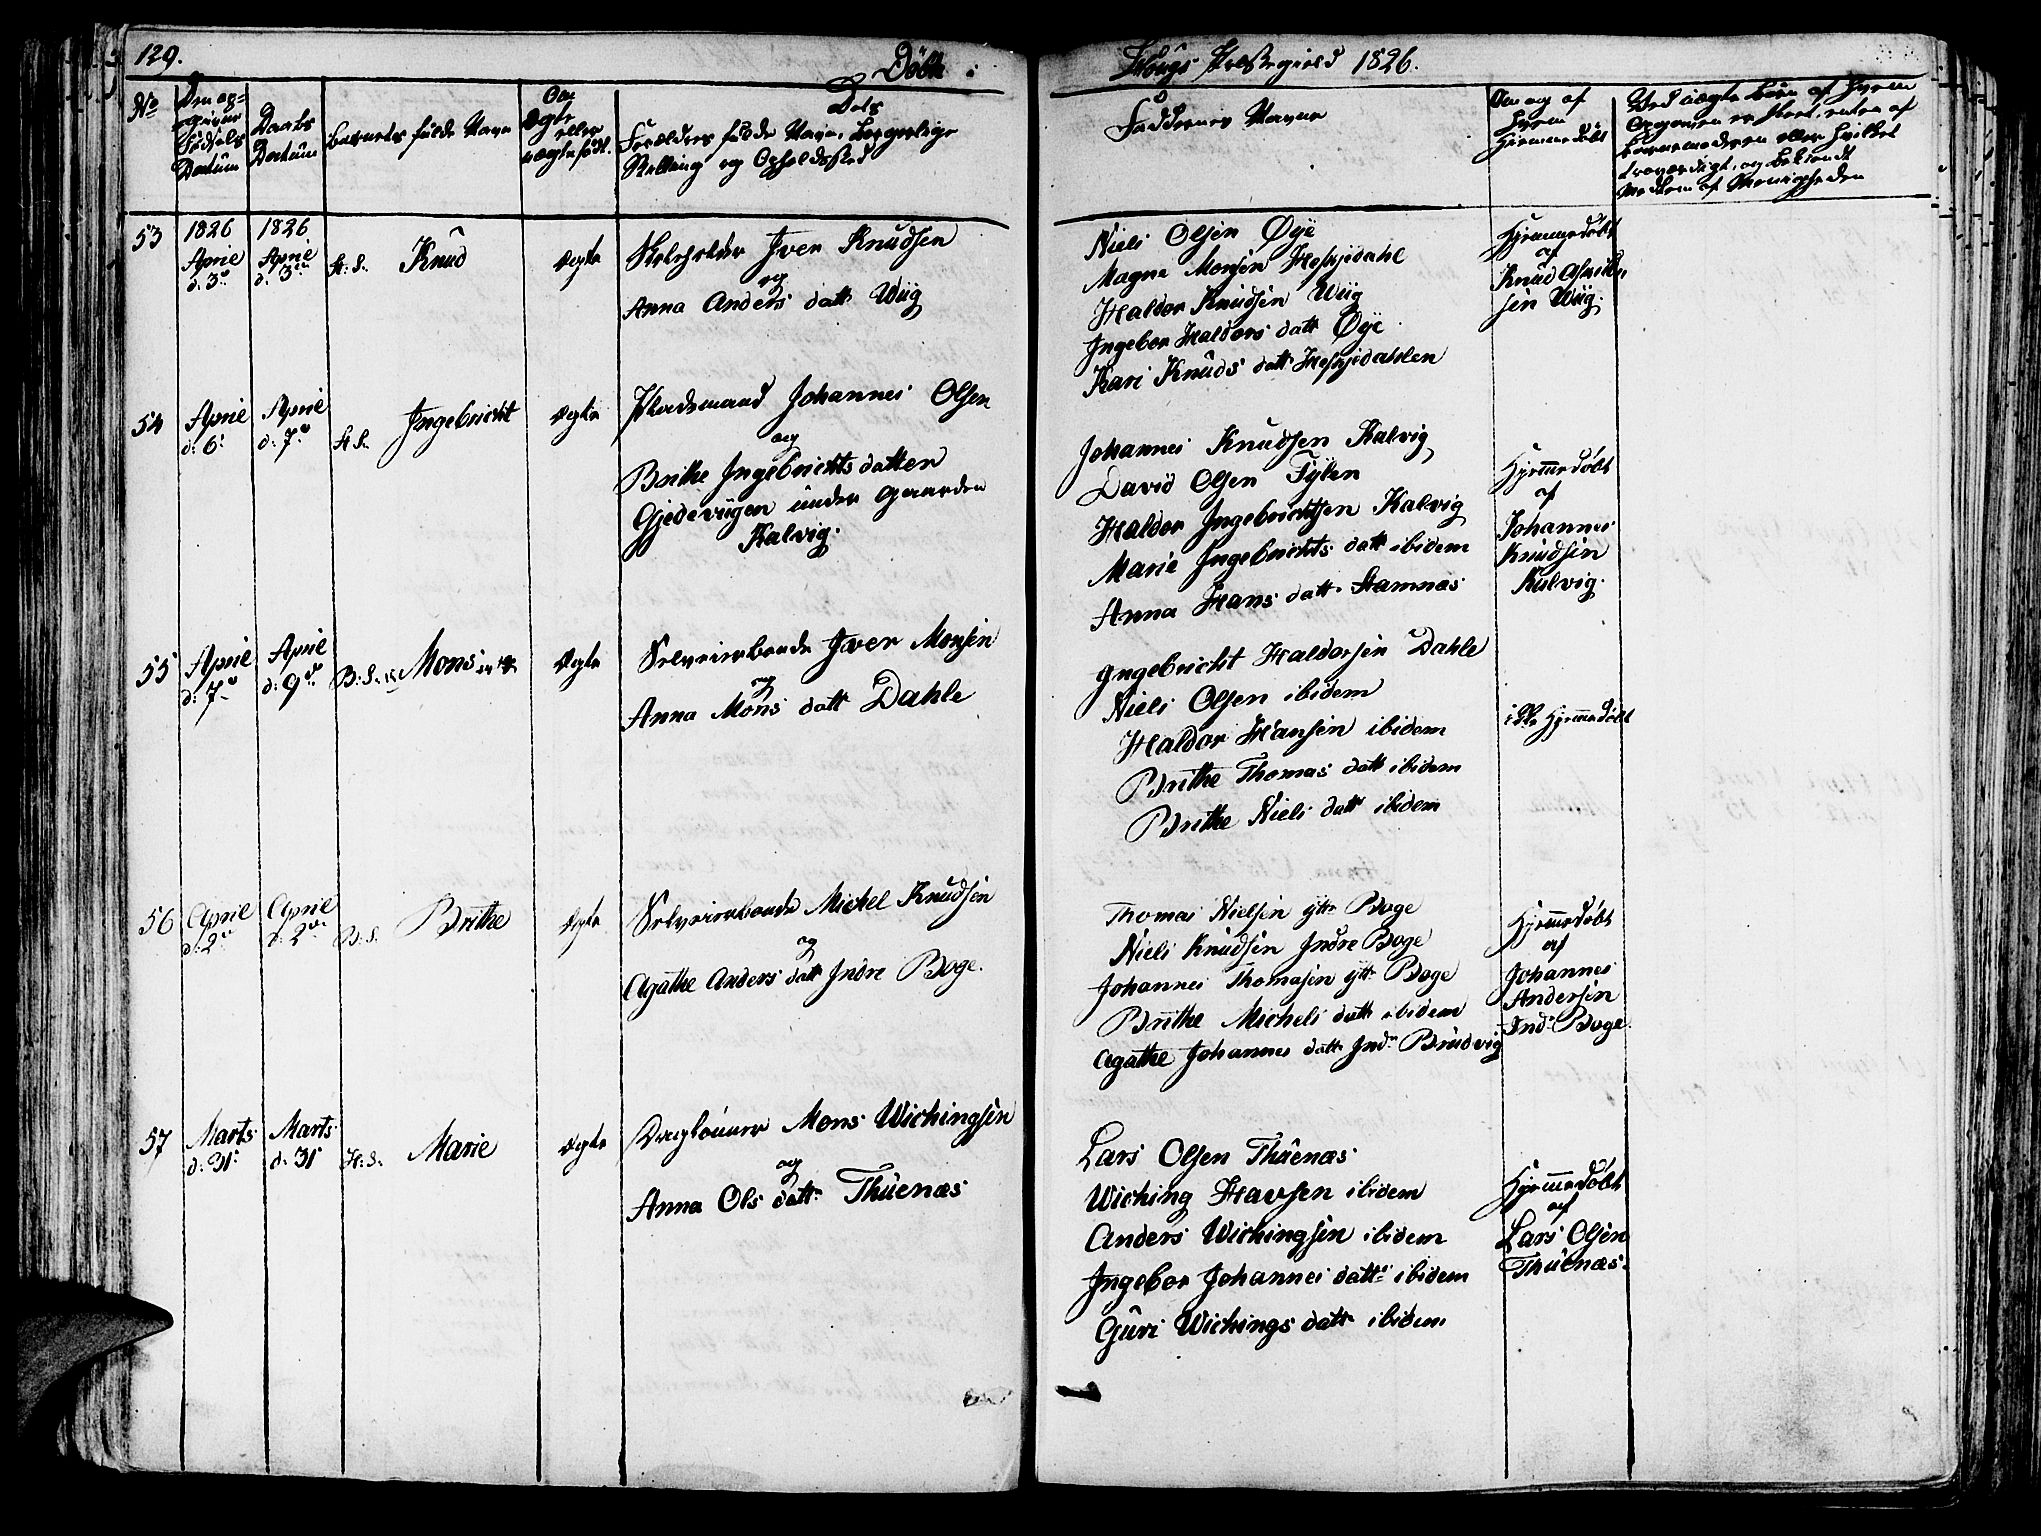 129.
Döbte i
Houg's Præstegield 1826.
No
Den opgivne Fødsels Datum
Daabs Datum
Barnets fulde Navn
Om Ægte eller uægte født.
Forældres fulde Navn, Borgerlige Stilling og Opholdssted
Faddernes Navne
Om og af Hvem Hjemmedøbt
53
1826 April d: 3.
1826 April d. 3.
St: S.
Knud
ægte
Iver Knudsen
og
Anna Anders datt: Wiig
Niels Olsen Øye
Magne Monsen Hesjedahl
Haldor Knudsen Wiig
Ingebor Haldors datt Øye.
Kari Knuds datt Hesjedahlen
Hjemmedöbt
af
Knud
sen Wiig.
54
April d: 6.
April d. 7.
St S.
Ingebricht
ægte
Pladsmand Johannes Olsen
og
Brithe Ingebrichtsdatter
Gjedevugen under Gaarden
Kalvig.
Johannes Knudsen Kalvig
David Olsen Fylen
Haldor Ingebrichtsen Kalvig
Marie Ingebrichts datt ibidem
Anna Hans datt. Stamnæs
Hjemedöbt
af
Johannes
Knudsen
Kalvig.
55
April d: 7.
April d: 9.
B: S.
Mons
ægte
Selveierbonde Iver Monsen
og
Anna Mons datt Dahle
Ingebricht Haldorsen Dahle
Niels Olsen ibidem
Haldor Hansen ibidem
Brithe Thomas datt ibidem
Brithe Niels datt ibidem
ikke Hjemmedöbt
56
April d: 2.
April d. 2.
B: S.
Brithe
ægte
Selveierbonde Michel Knudsen
og
Agathe Anders datt Indre Boge.
Thomas Nielsen ytt. Boge
Niels Knudsen Indre Boge
Johannes Thomasen ytt. Boge
Brithe Michels datt ibidem
Agathe Johannes datt Ind. Bruvig
Hjemedöbt
af
Johannes
Andersen
Ind. Boge.
57
Marts d: 31.
Marts d. 31
H: S.
Marie
ægte
Daglönner Mons Wichingsen
og
Anna Ols datt. Thuenæs
Lars Olsen Thuenæs
Wiching Havsen ibidem
Anders Wichingsen ibidem
Ingebor Johannes datt. ibidem
Guri Wichings datt ibidem
Hjemedöbt
af
Lars Olsen
Thuenæs.